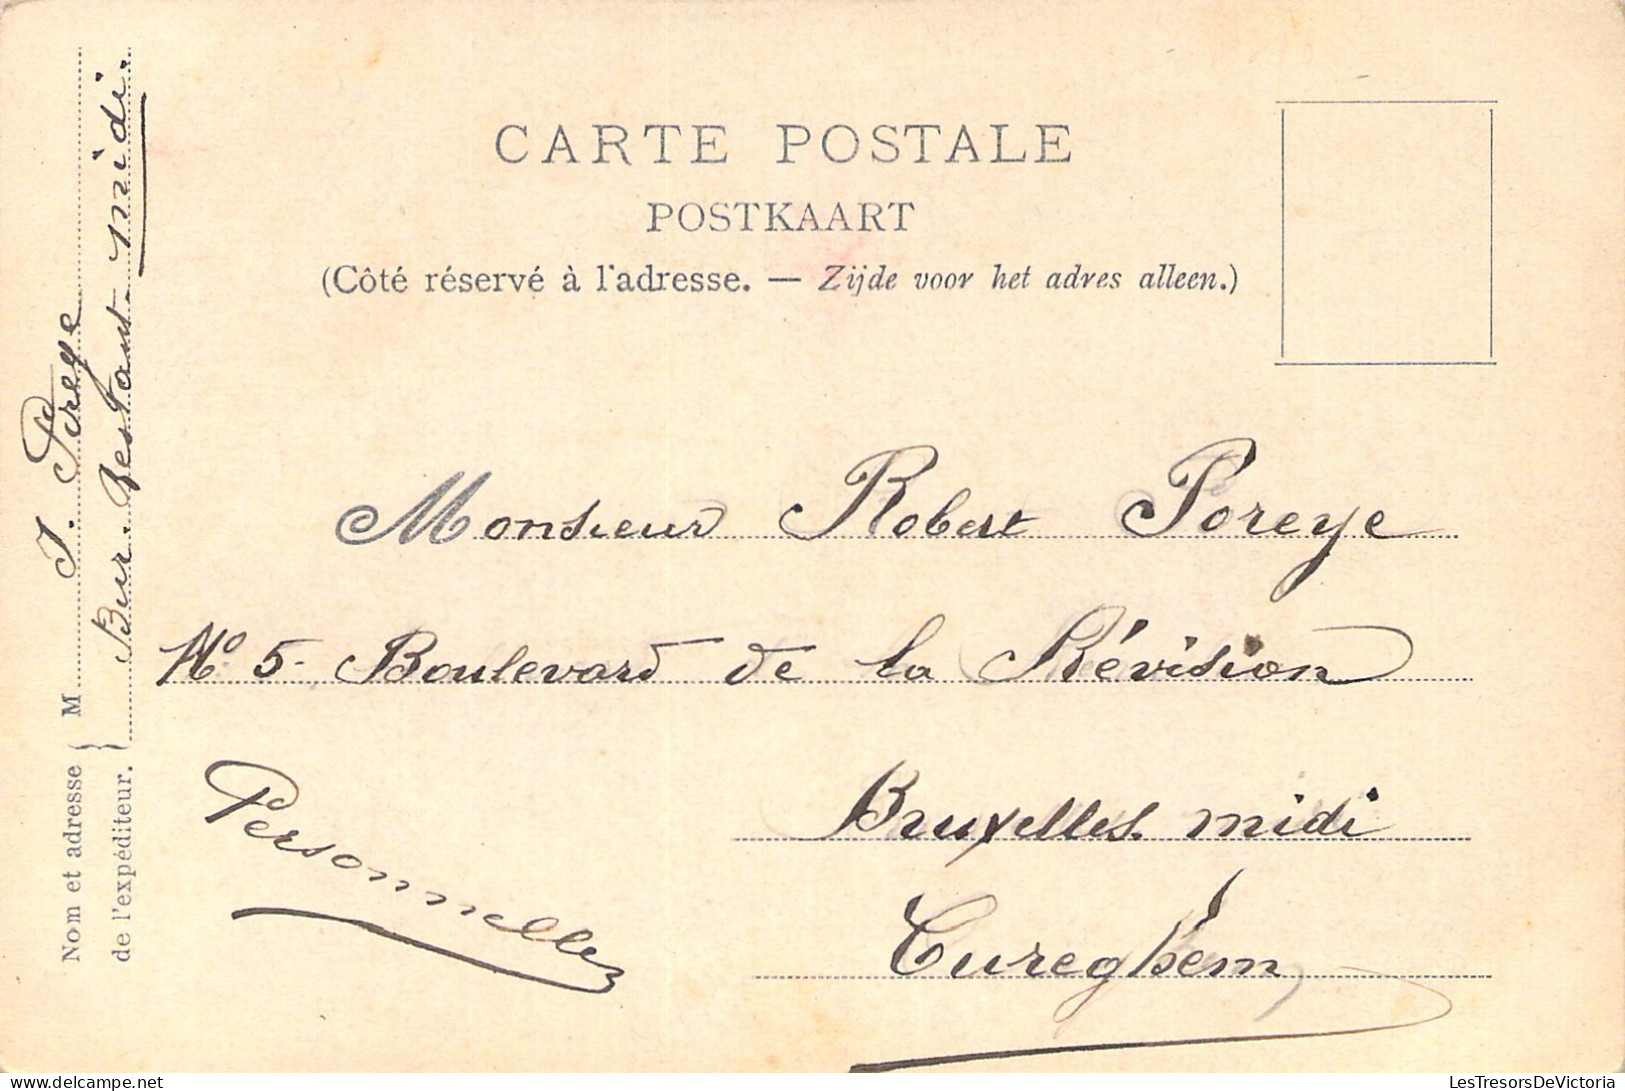 CARTE POSTALE
POSTKAART
(Côté réservé à l'adresse. — Zijde voor het adres alleen.)
Monsieur Robert Poreye
No 5 - Boulevard de la Révision
Bruxelles midi
Cureghem
Personnelle
Nom et adresse de l'expéditeur. } M J. Poreye
Bur. Restant midi.
LesTresorsDeVictoria